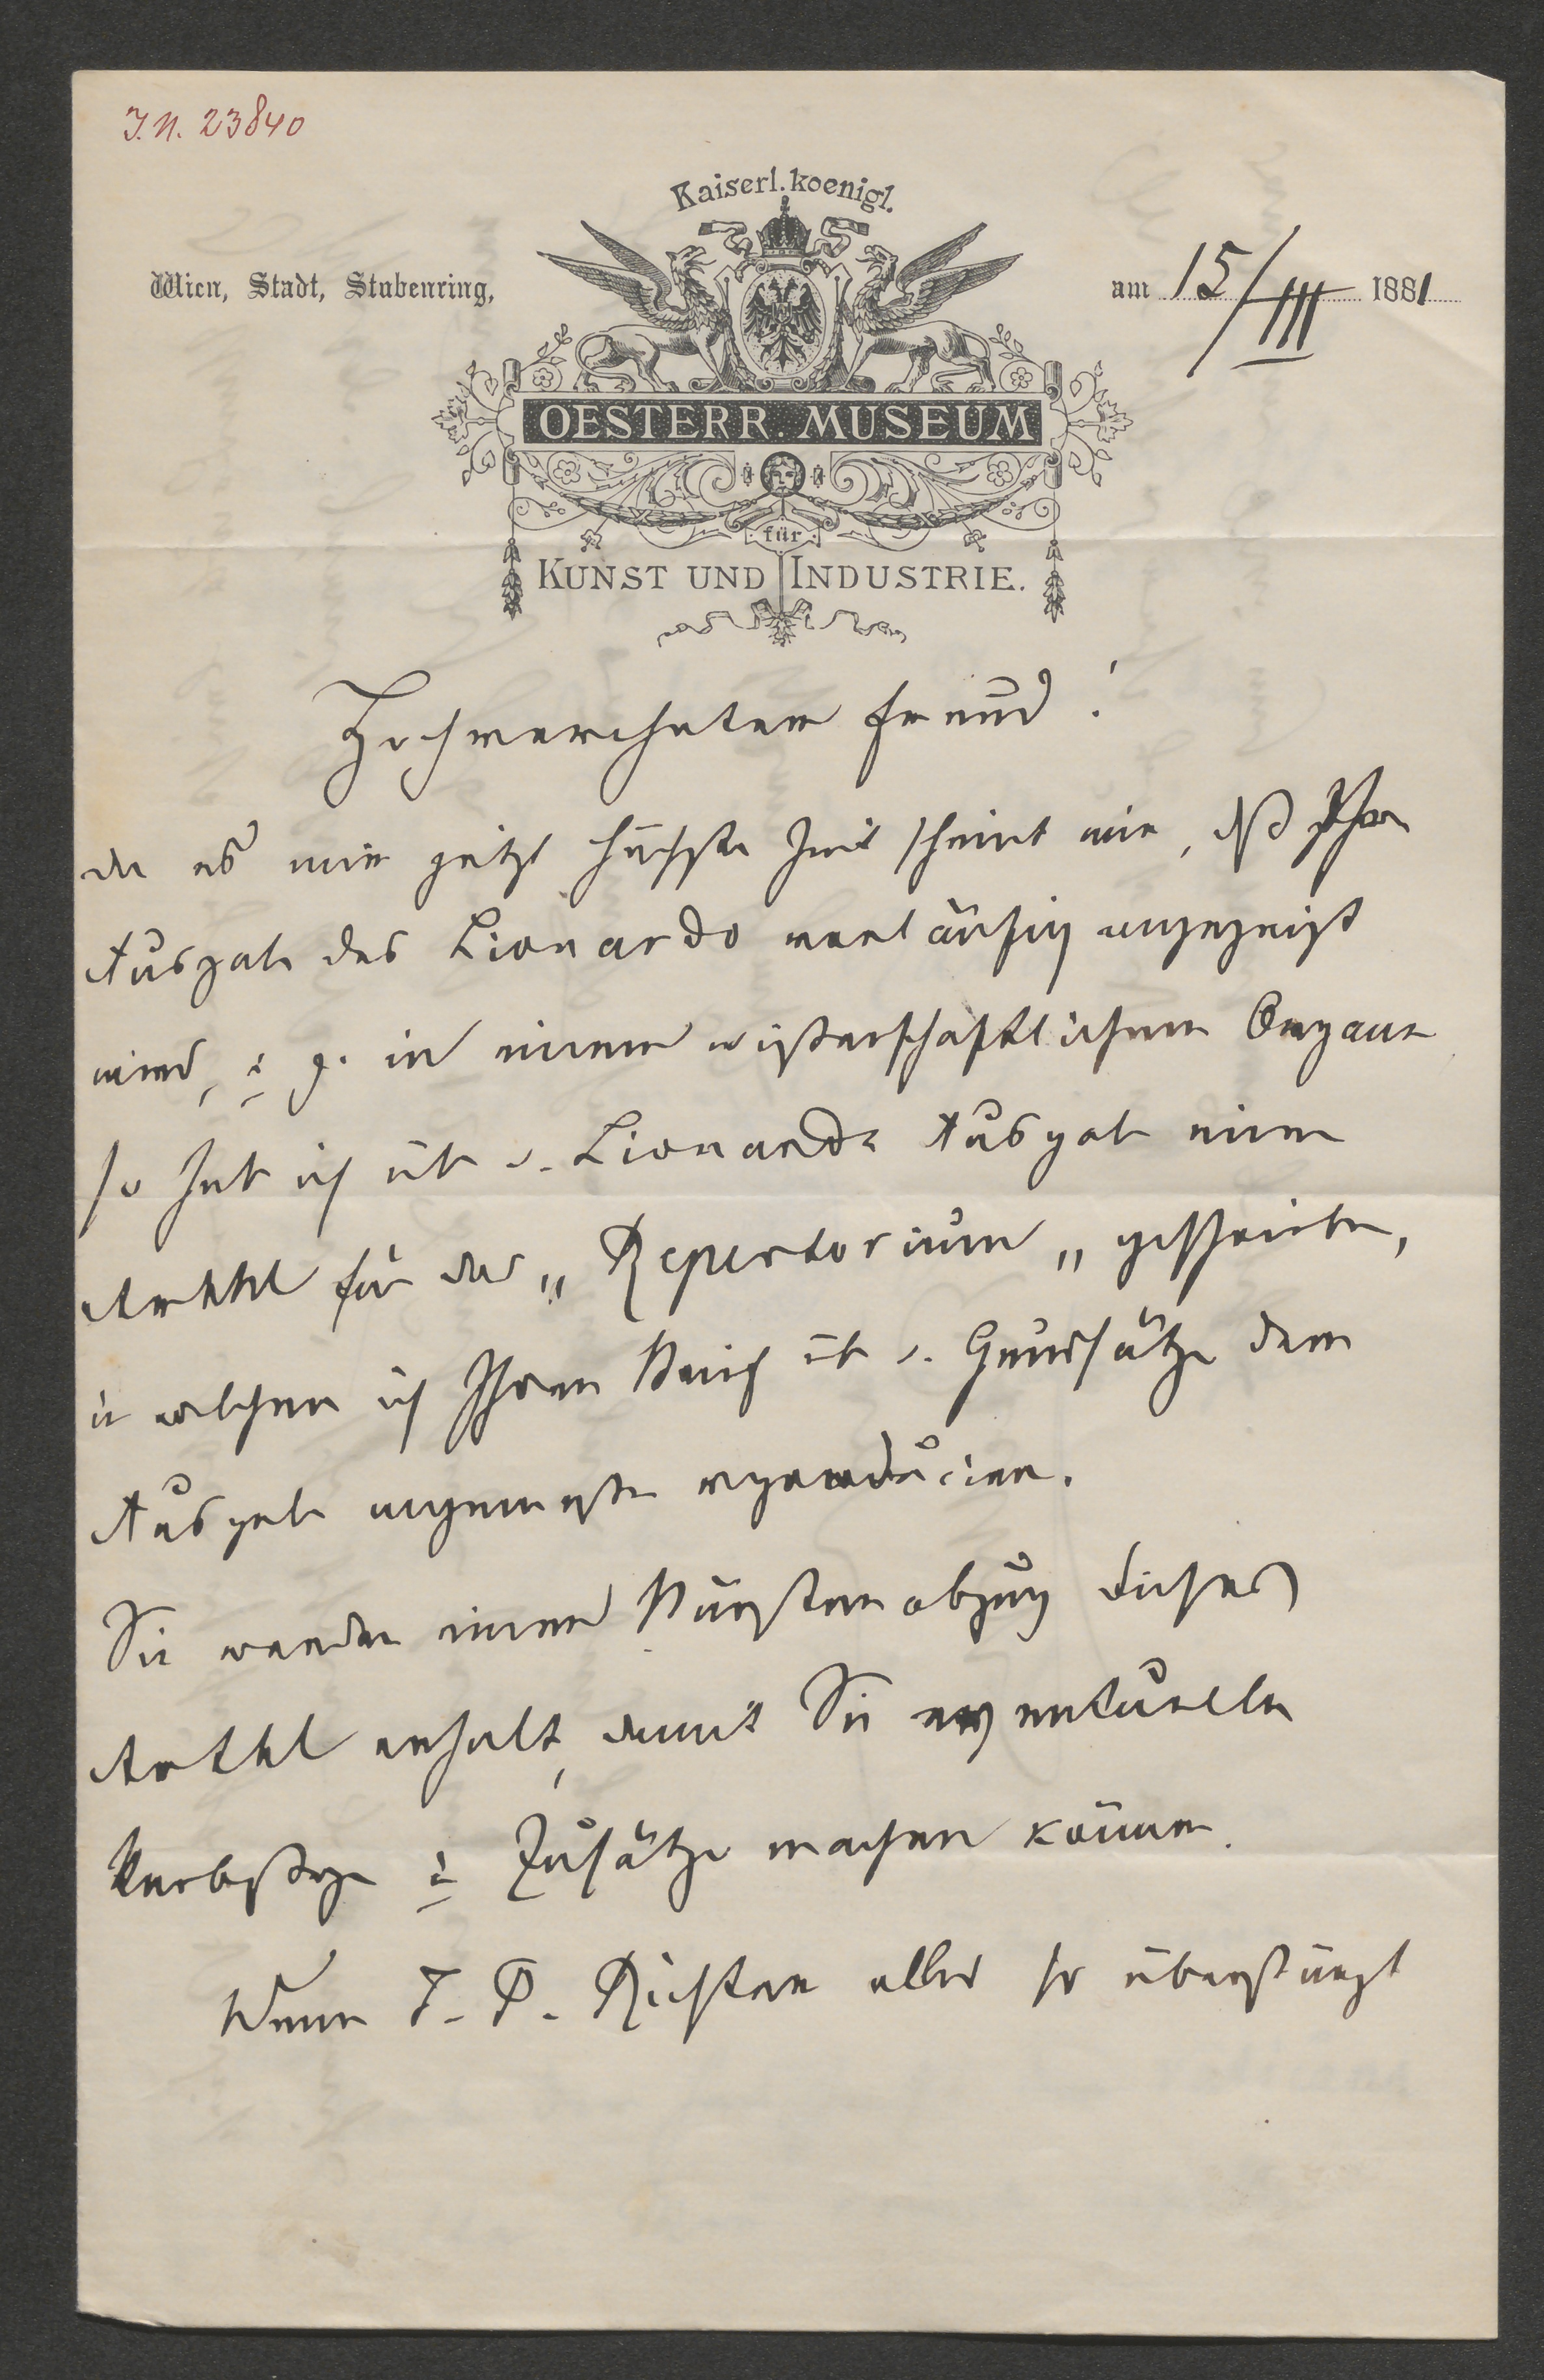 I. N. 23840
Kaiserl. koenigl.
Wien, Stadt, Stubenring,
am 15/III 1881
OESTERR. MUSEUM
für
KUNST UND INDUSTRIE.
Hochverehrter Freund!
da es mir jetzt höchste Zeit scheint mir, dß Ihre
Ausgabe des Lionardo vorläufig angezeigt
wird, u. z. in einem wißenschaftlichem Organe
so hab ich üb d. Lionardo Ausgabe einen
Artikl für das „Repertorium„ geschrieben,
in welchem ich Ihren Brief üb d. Grundsätze der
Ausgabe
Sie werden einen Bürstenabzug dieses
Artikl erhalt, damit Sie eventuelle
u. Zusätze machen können.
Wenn J. P. Richter alles so überstürzt